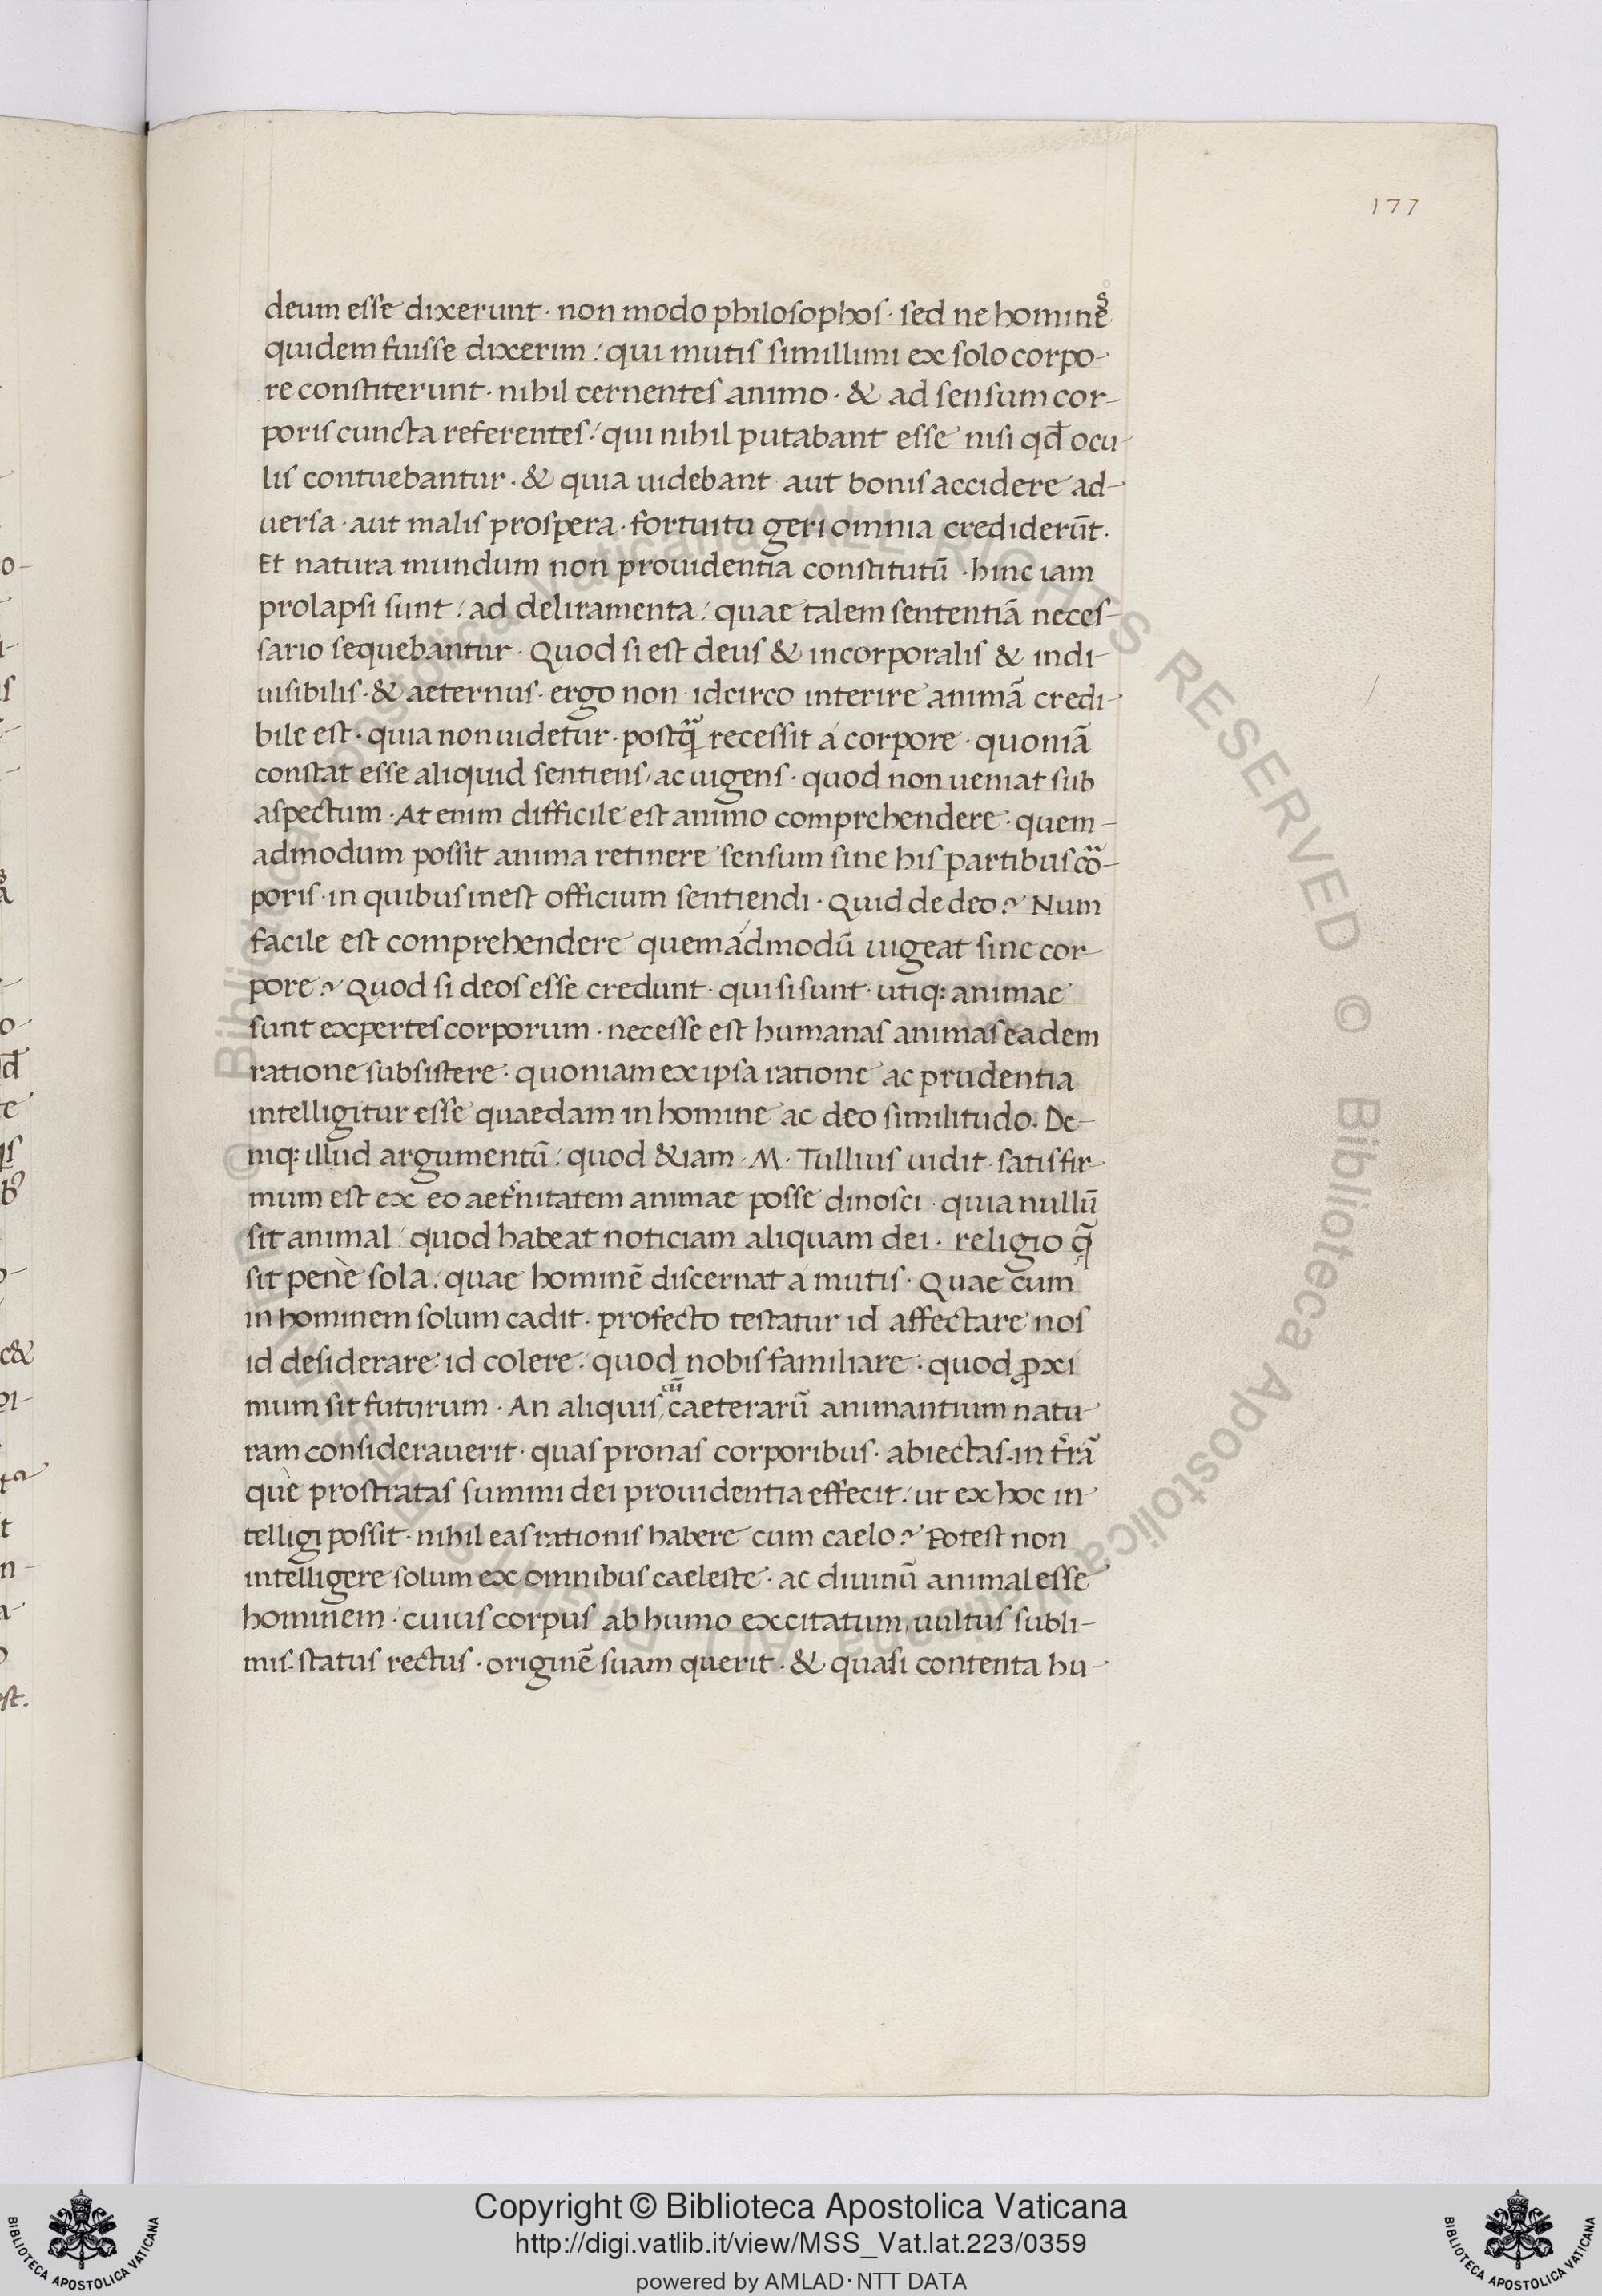 177
deum esse dixerunt · non modo philosophos · sed ne homines
quidem fuisse dixerim : qui mutis simillimi ex solo corpo-
re constiterunt · nihil cernentes animo · & ad sensum cor-
poris cuncta referentes : qui nihil putabant esse nisi qđ ocu-
lis contuebantur · & quia uidebant aut bonis accidere ad-
uersa · aut malis prospera · fortuitu geri omnia crediderūt ·
Et natura mundum non prouidentia constitutū · hinc iam
prolapsi sunt : ad deliramenta : quae talem sententiā neces-
sario sequebantur · Quod si est deus & incorporalis & indi-
uisibilis · & aeternus · ergo non idcirco interire animā credi-
bile est · quia non uidetur · postq̃ recessit á corpore · quoniā
constat esse aliquid sentiens, ac uigens · quod non ueniat sub
aspectum · At enim difficile est animo comprehendere · quem-
admodum possit anima retinere sensum sine his partibus cõ-
poris · in quibus inest officium sentiendi · Quid de deo ? Num
facile est comprehendere quemádmodū uigeat sine cor-
pore ? Quod si deos esse credunt · qui si sunt · utiq: animae
sunt expertes corporum · necesse est humanas animas eadem
ratione subsistere : quoniam ex ipsa ratione ac prudentia
intelligitur esse quaedam in homine ac deo similitudo. De-
niq: illud argumentū : quod &iam · M · Tullius uidit · satis fir-
mum est ex eo aet̓nitatem animae posse dinosci · quia nullū
sit animal : quod habeat noticiam aliquam dei · religio q̃
sit penè sola : quae hominē discernat á mutis · Quae cum
in hominem solum cadit · profecto testatur id affectare nos
id desiderare : id colere : quod nobis familiare · quod ꝓxi
mum sit futurum · An aliquis, cū caeterarū animantium natu-
ram considerauerit · quas pronas corporibus · abiectas · in t̓rā
què prostratas summi dei prouidentia effecit : ut ex hoc in-
telligi possit · nihil eas rationis habere cum caelo ? Potest non
intelligere solum ex omnibus caeleste · ac diuinū animal esse
hominem · cuius corpus ab humo excitatum, uultus subli-
mis · status rectus · originē suam querit · & quasi contenta hu-
Copyright © Biblioteca Apostolica Vaticana
http://digi.vatlib.it/view/MSS_Vat.lat.223/0359
powered by AMLAD·NTT DATA
BIBLIOTECA APOSTOLICA VATICANA
BIBLIOTECA APOSTOLICA VATICANA